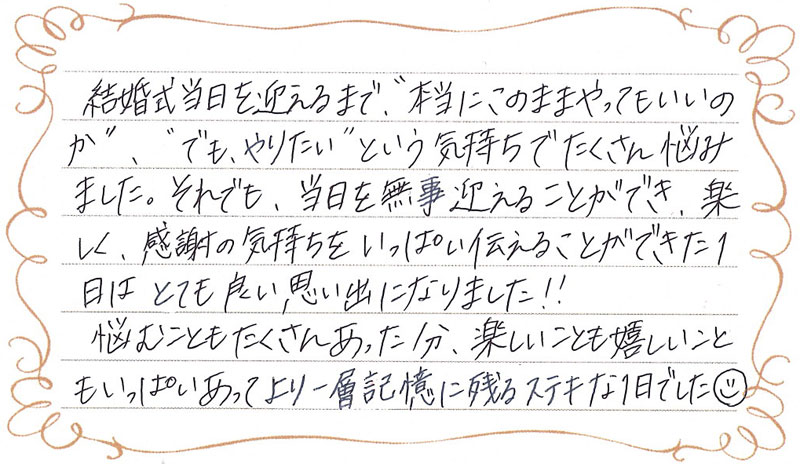 結婚式当日を迎えるまで、“本当にこのままやってもいいの
か”、“でも、やりたい”という気持ちでたくさん悩み
ました。それでも、当日を無事迎えることができ、楽
しく、感謝の気持ちをいっぱい伝えることができた1
日はとても良い思い出になりました!!
悩むこともたくさんあった分、楽しいことも嬉しいこと
もいっぱいあってより一層記憶に残るステキな1日でした☺